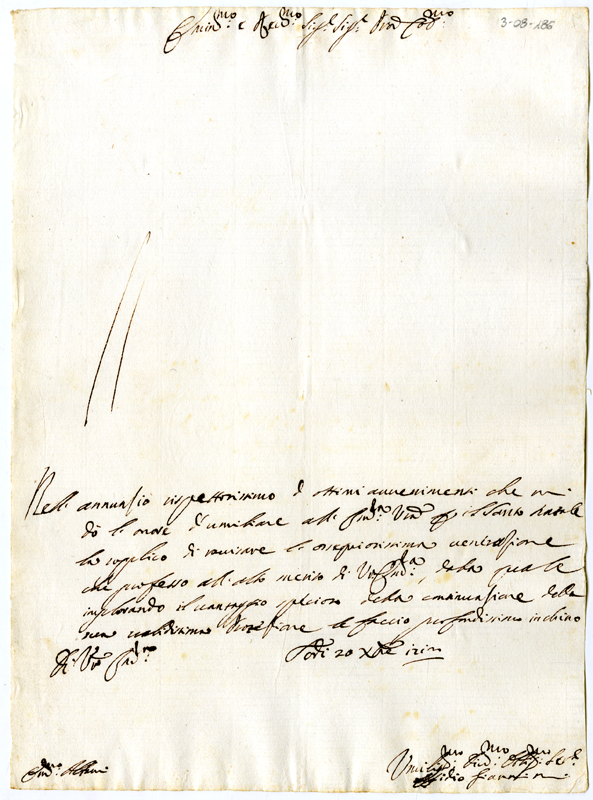 Emin.mo e Rev.mo Sig.r Sig.r Pron Col.mo
3-08-186
Nell annunzio rispettosissimo d ottimi avvenimenti che mi
dò l'onore d'umiliare all' Em.za V.ra il Santo Natale
la supplico di ravisare l'ossequiosissima venerazione
che professo all alto merito di V. Em.za, dalla quale
implorando il vantaggio specioso della continuazione della
sua validissima Protezione le faccio profondissimo inchino
Di V.ra Em.za
20 Xbre
Em.mo Albani
Umiliss.mo Div.mo Obl.mo